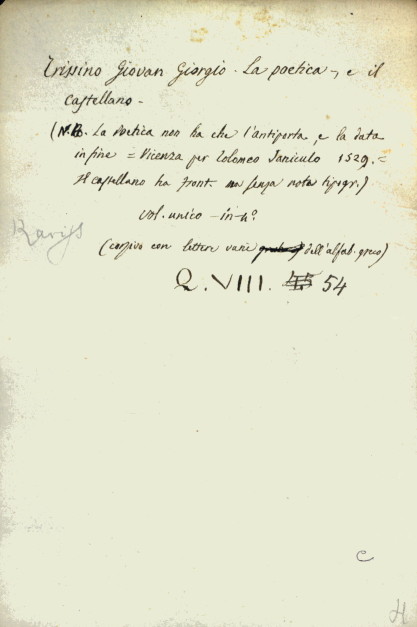 Trissino Giovan Giorgio. La poetica, e il
Castellano -
(N.B. La Poetica non ha che l'antiporta, e la data
in fine = Vicenza per Tolomeo Janiculo 1529. =
Il castellano ha front. ma senza nota tipogr.)
Vol. unico - in-4.°
(corsivo con lettere varie dell'alfab. greco)
Q. VIII. 54
C
H